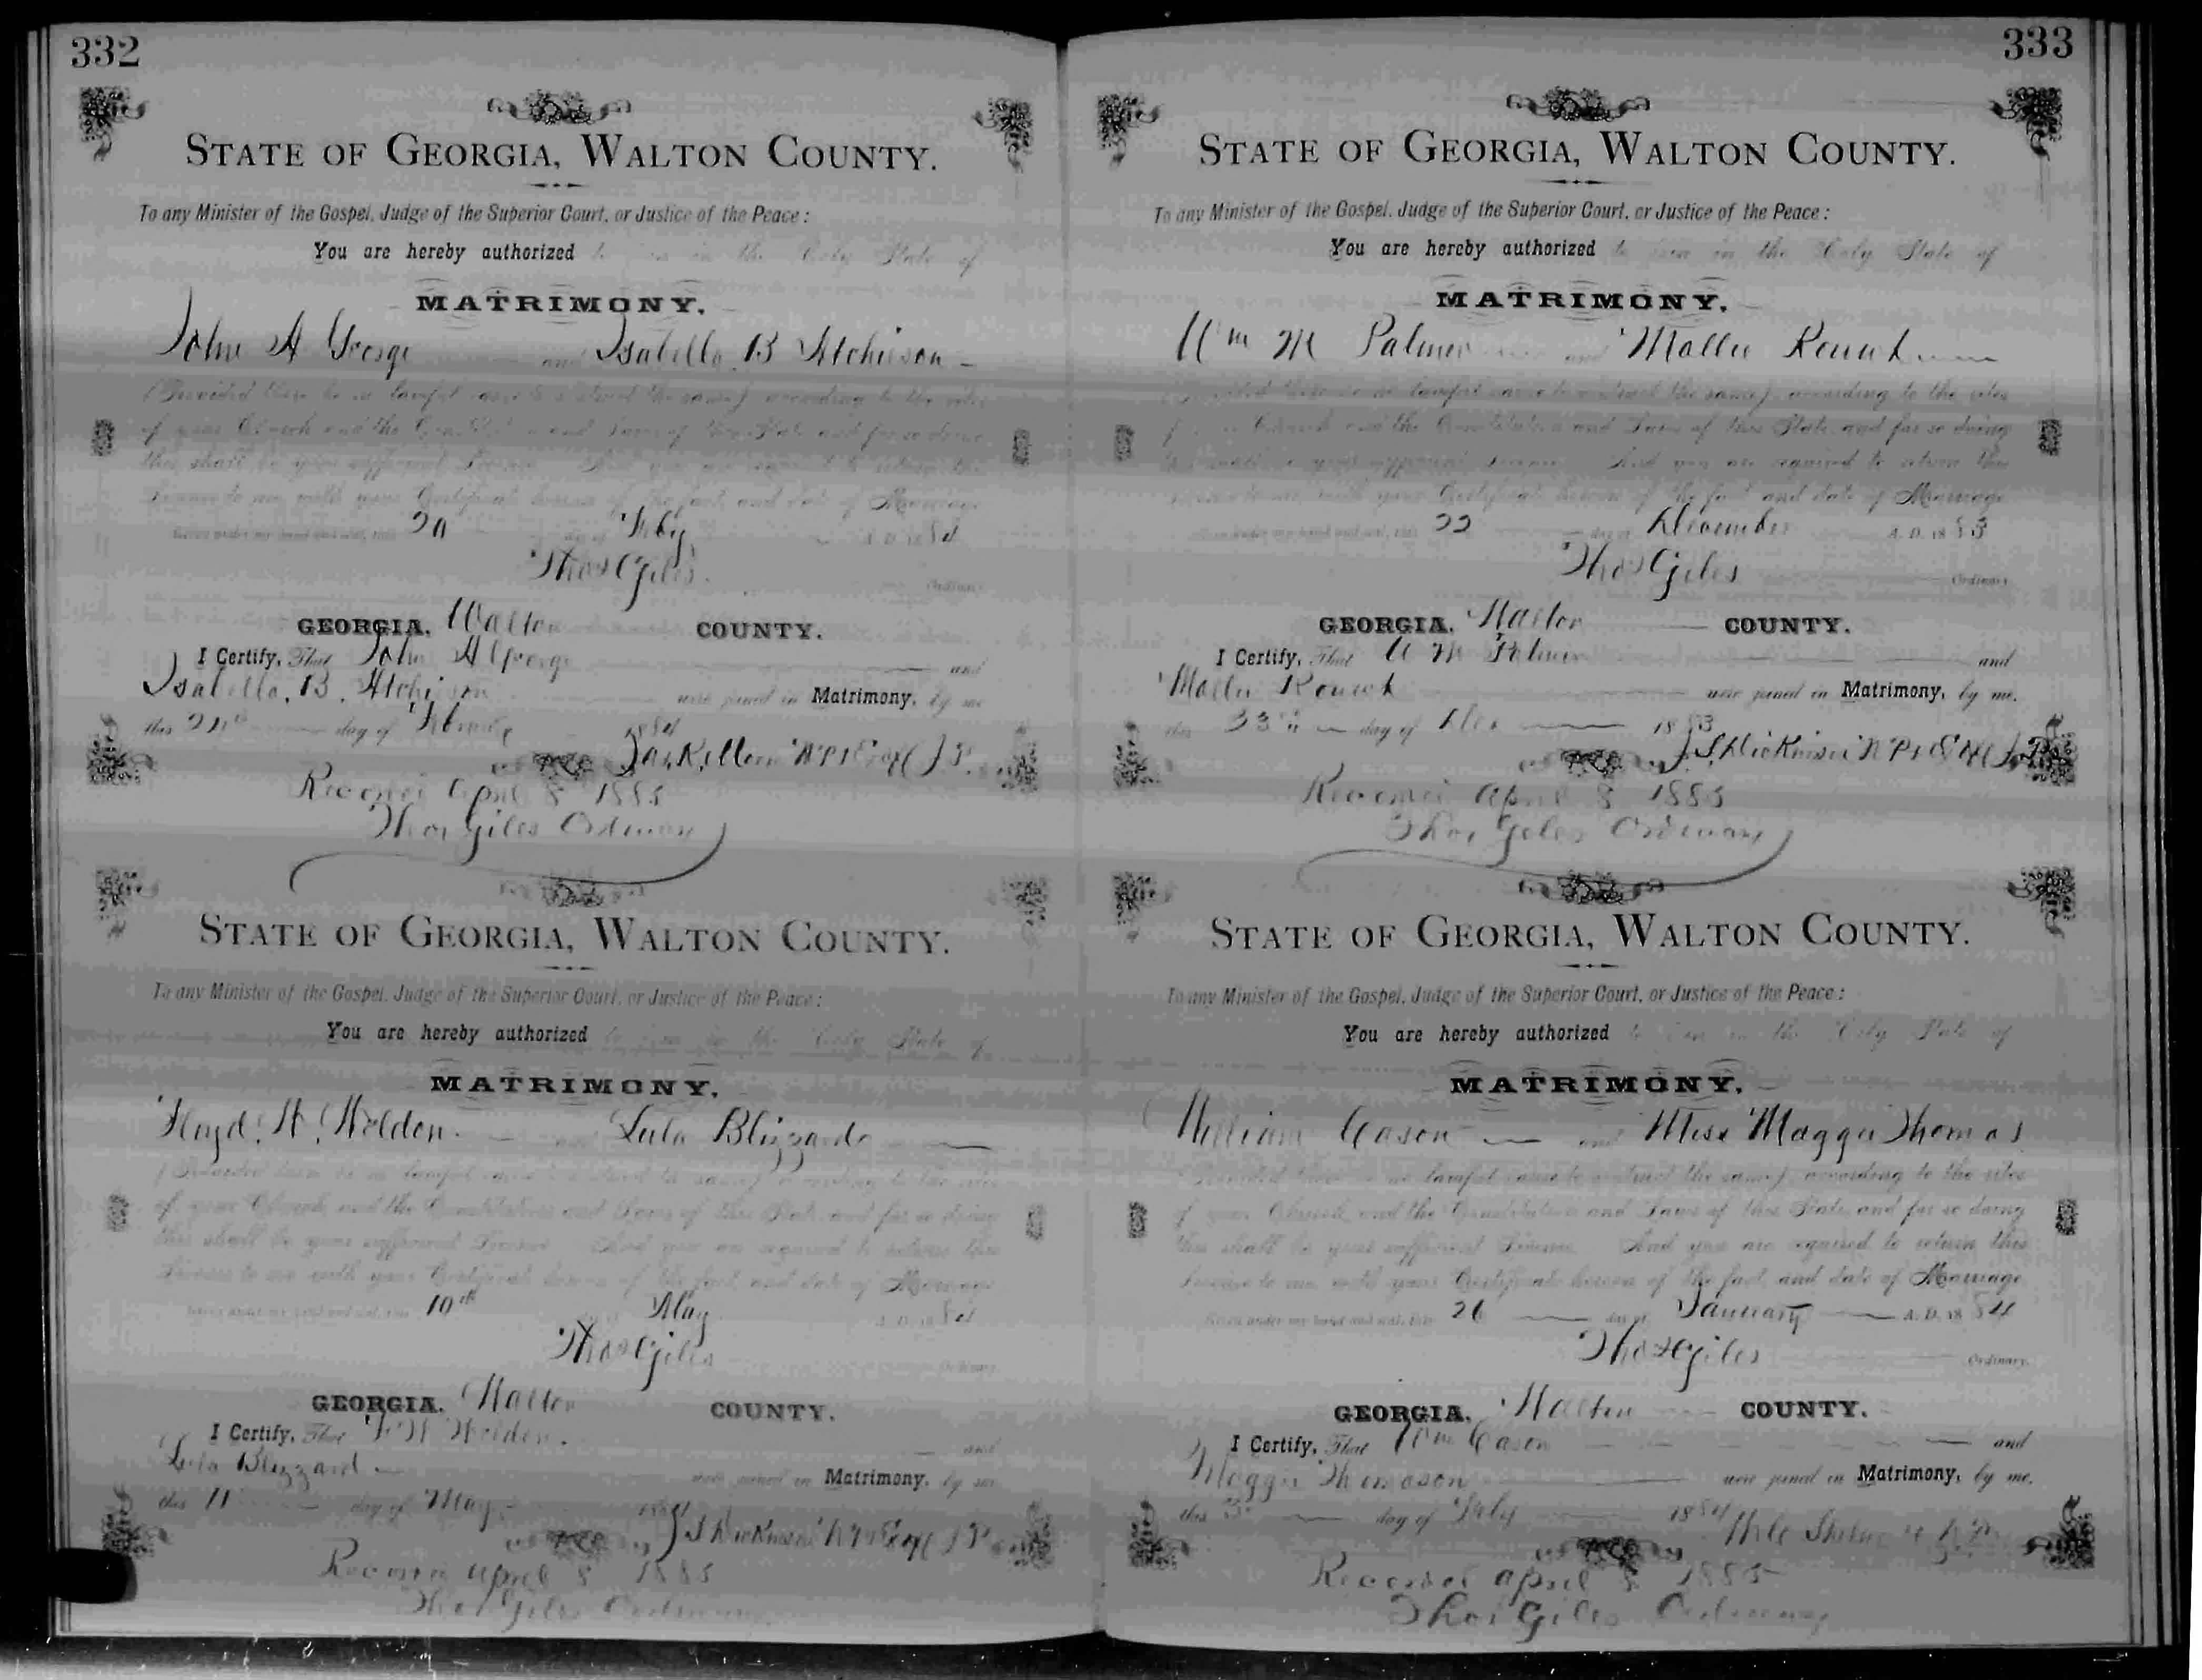 332
STATE OF GEORGIA, WALTON COUNTY.
To any Minister of the Gospel, Judge of the Superior Court, or Justice of the Peace:
You are hereby authorized to join in the Holy State of
MATRIMONY.
John A George and Isabella B Atchison
(Provided there be no lawful cause to obstruct the same) according to the rites
of your Church and the Constitution and Laws of this State and for so doing
this shall be your sufficient License. And you are required to return this
License to me with your Certificate hereon of the fact and date of Marriage
Given under my hand and seal, this day of Feby A.D. 1884
Thos Giles Ordinary
GEORGIA, Walton COUNTY.
I Certify, That John A George and
Isabella B. Atchison were joined in Matrimony, by me
this day of 1884
J.P.
April 8 1885
Thos Giles Ordinary
STATE OF GEORGIA, WALTON COUNTY.
To any Minister of the Gospel, Judge of the Superior Court, or Justice of the Peace:
You are hereby authorized to join in the Holy State of
MATRIMONY.
Floyd W. Weldon and Lula Blizzard
(Provided there be no lawful cause to obstruct the same) according to the rites
of your Church and the Constitution and Laws of this State and for so doing
this shall be your sufficient License. And you are required to return this
License to me with your Certificate hereon of the fact and date of Marriage
10th May A.D. 1884
Thos Giles Ordinary
GEORGIA, Walton COUNTY.
I Certify, That F W Weldon and
Lula Blizzard were joined in Matrimony, by me
this 11 day of May 1884
J.P.
April 8 1885
Thos Giles Ordinary
333
STATE OF GEORGIA, WALTON COUNTY.
To any Minister of the Gospel, Judge of the Superior Court, or Justice of the Peace:
You are hereby authorized to join in the Holy State of
MATRIMONY.
Wm M Palmer and Mollie
(Provided there be no lawful cause to obstruct the same) according to the rites
of your Church and the Constitution and Laws of this State and for so doing
this shall be your sufficient License. And you are required to return this
License to me with your Certificate hereon of the fact and date of Marriage
Given under my hand and seal, this 22 day of December A.D. 1883
Thos Giles Ordinary
GEORGIA, Walton COUNTY.
I Certify, That W M Palmer and
Mollie were joined in Matrimony, by me.
this day of Dec 1883
April 8 1885
Thos Giles Ordinary
STATE OF GEORGIA, WALTON COUNTY.
To any Minister of the Gospel, Judge of the Superior Court, or Justice of the Peace:
You are hereby authorized to join in the Holy State of
MATRIMONY.
William Cason and Miss Maggie Thomas
(Provided there be no lawful cause to obstruct the same) according to the rites
of your Church and the Constitution and Laws of this State and for so doing
this shall be your sufficient License. And you are required to return this
License to me with your Certificate hereon of the fact and date of Marriage
Given under my hand and seal, this 26 day of January A.D. 1884
Thos Giles Ordinary.
GEORGIA, Walton COUNTY.
I Certify, That Wm Cason and
Maggie Thomason were joined in Matrimony, by me.
this day of 1884
April 8 1885
Thos Giles Ordinary